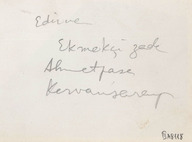 Edirne
Ekmekçi zade
Ahmetpaşa
Kervansaray